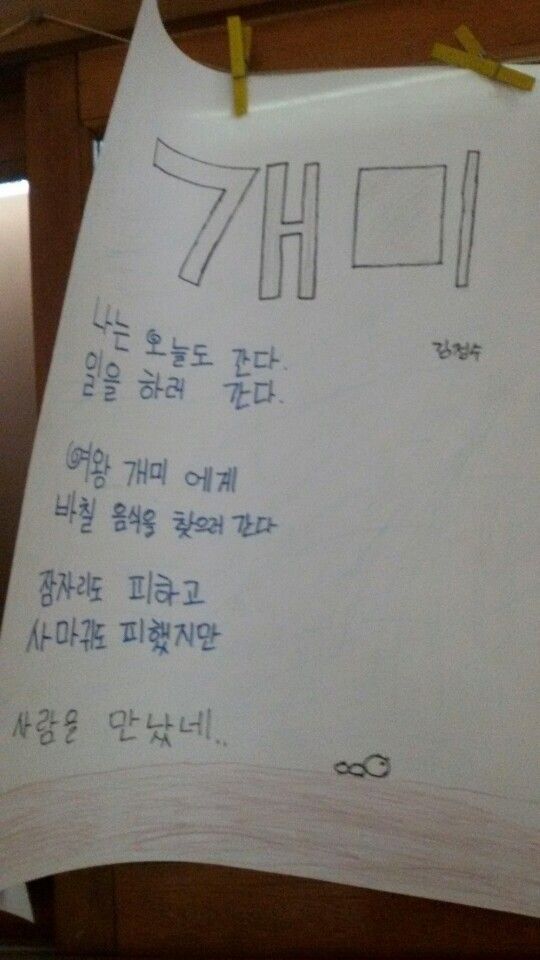 개미
김점수
나는 오늘도 간다.
일을 하러 간다.
여왕 개미 에게
바칠 음식을 찾으러 간다
잠자리도 피하고
사마귀도 피했지만
사람을 만났네..